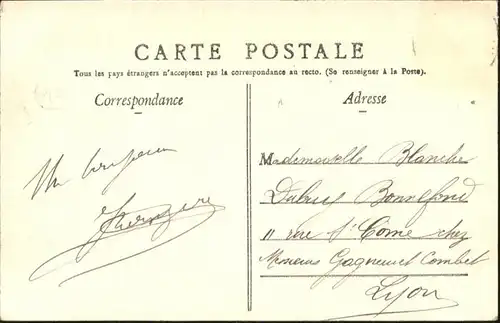 CARTE POSTALE
Tous les pays étrangers n'acceptent pas la correspondance au recto. (Se renseigner à la Poste).
Correspondance
Adresse
Un bonjour
Mademoiselle Blanche
Dubuy Bonnefond
11 rue St Come chez
Messieurs Gagneur et Combet
Lyon